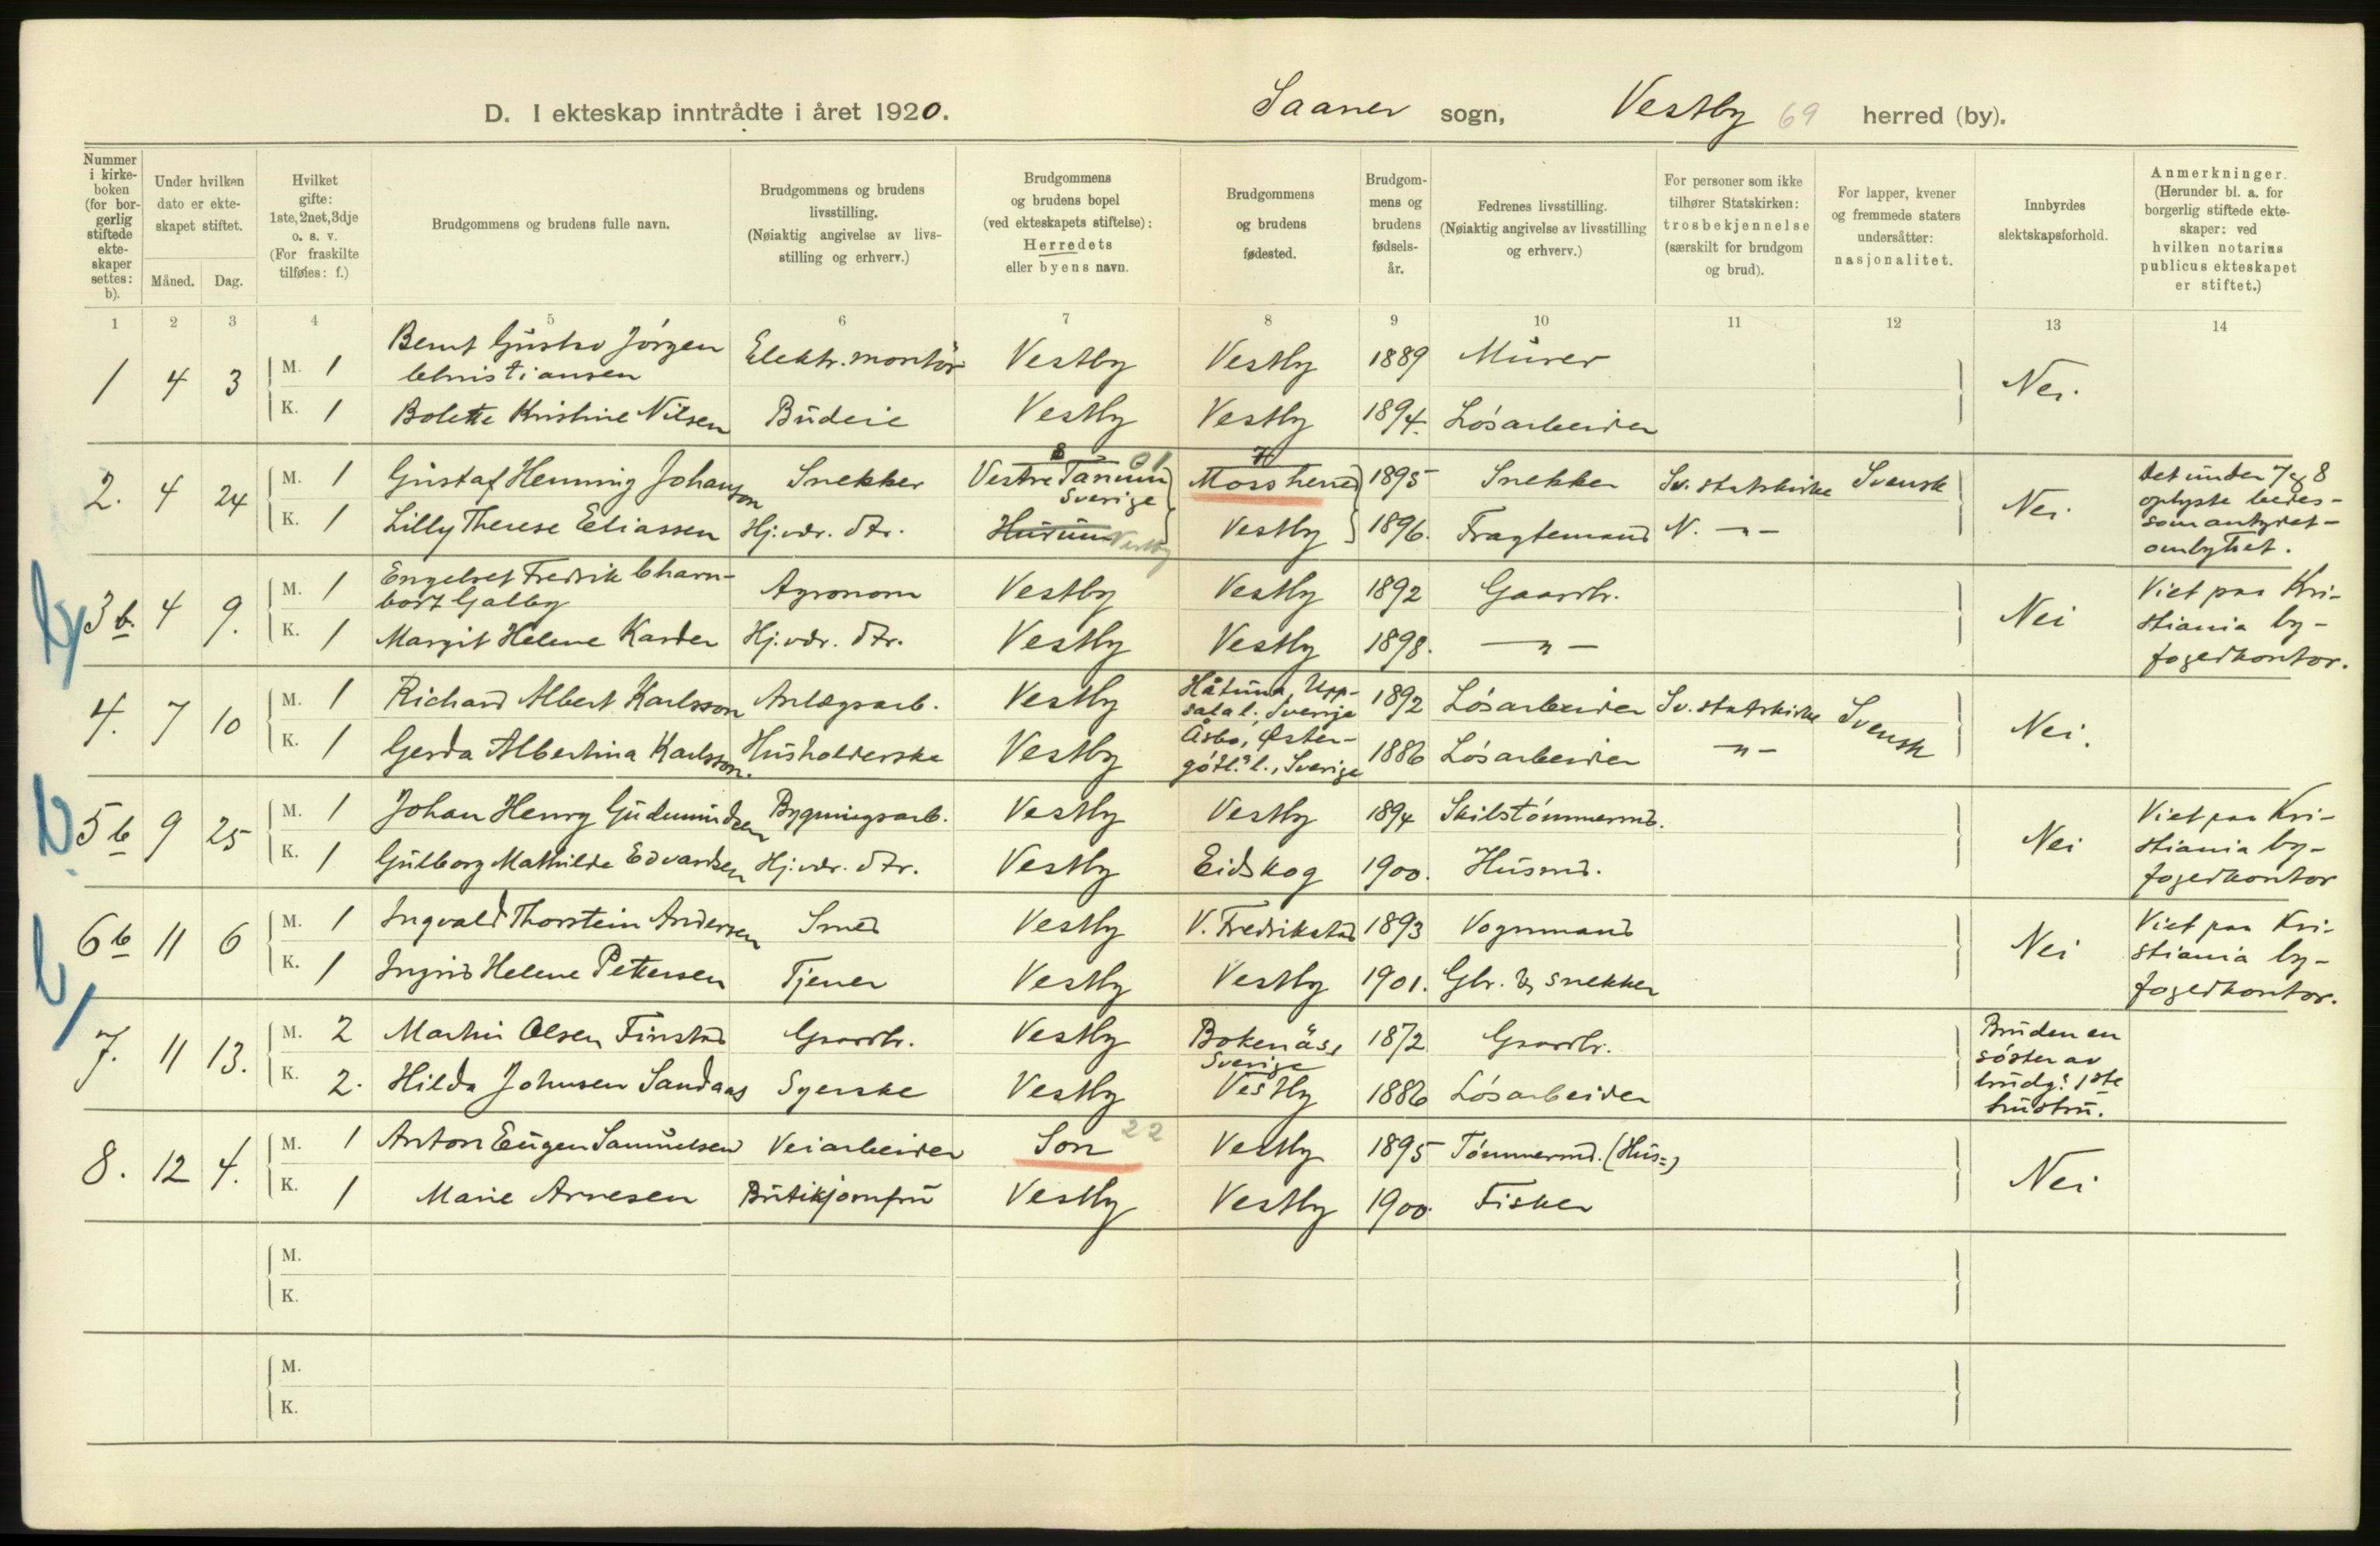 D. I ekteskap inntrådte i året 1920. Saaner sogn, Vestby 69 herred (by).
Nummer i kirkeboken (for borgerlig stiftede ekteskaper settes: b).
Under hvilken dato er ekteskapet stiftet.
Måned. Dag.
Hvilket gifte: 1ste, 2net, 3dje o. s. v. (For fraskilte tilføies: f.)
Brudgommens og brudens fulle navn.
Brudgommens og brudens livsstilling. (Nøiaktig angivelse av livsstilling og erhverv.)
Brudgommens og brudens bopel (ved ekteskapets stiftelse): Herredets eller byens navn.
Brudgommens og brudens fødested.
Brudgommens og brudens fødselsår.
Fedrenes livsstilling. (Nøiaktig angivelse av livsstilling og erhverv.)
For personer som ikke tilhører Statskirken: trosbekjennelse (særskilt for brudgom og brud).
For lapper, kvener og fremmede staters undersåtter: nasjonalitet.
Innbyrdes slektskapsforhold.
Anmerkninger. (Herunder bl. a. for borgerlig stiftede ekteskaper: ved hvilken notarius publicus ekteskapet er stiftet.)
1 2 3 4 5 6 7 8 9 10 11 12 13 14
1 4 3 M. 1 Bernt Gustav Jörgen Christiansen Elektr. montör Vestby Vestby 1889 Murer Nei.
K. 1 Bolette Kristine Nilsen Budeie Vestby Vestby 1894. Lösarbeider
2. 4 24 M. 1 Gustaf Henning Johanson Snekker Vestre Tanum Sverige 8 01 Moss herred 7 1895 Snekker Sv. statskirke Svensk Nei. Det under 7 & 8 oplyste bedes som antydet ombyttet.
K. 1 Lilly Therese Eliassen Hj. vær. dtr. Hurum Vestby Vestby 1896. Fragtemand N. -"-
by 3 b. 4 9. M. 1 Engebret Fredrik Gharnbort Galby Agronom Vestby Vestby 1892 Gaardbr. Nei Viet paa Kristiania byfogedkontor.
K. 1 Margit Helene Karder Hj. vær. dtr. Vestby Vestby 1898. -"-
4. 7 10 M. 1 Richard Albert Karlsson Anlægsarb. Vestby Håtuna, Uppsala l. Sverige 1892 Lösarbeider Sv. statskirke Svensk Nei.
K. 1 Gerda Albertina Karlsson. Husholderske Vestby Åsbo, Østergötl. l., Sverige 1886 Lösarbeider -"-
b. 5 b 9 25 M. 1 Johan Henry Gudmundsen Bygningsarb. Vestby Vestby 1894 Skibstömmermd. Nei Viet paa Kristiania byfogedkontor
K. 1 Gulborg Mathilde Edvardsen Hj. vær. dtr. Vestby Eidskog 1900. Husmd.
b 6 b 11 6 M. 1 Ingvald Thorstein Andersen Smed Vestby V. Fredrikstad 1893 Vognmand Nei Viet paa Kristiania byfogedkontor.
K. 1 Ingrid Helene Pettersen Tjener Vestby Vestby 1901. Gbr. & snekker
7. 11 13. M. 2 Martin Olsen Finstad Gaardbr. Vestby Bokenäs, Sverige 1872 Gaardbr. Bruden en söster av brudg.s 1ste hustru.
K. 2. Hilda Johnsen Sandaas Syerske Vestby Vestby 1886 Lösarbeider
8. 12 4. M. 1 Anton Eugen Samuelsen Veiarbeider Son 22 Vestby 1895 Tömmermd. (Hus=) Nei
K. 1 Marie Arnesen Butikjomfru Vestby Vestby 1900. Fisker
M.
K.
M.
K.